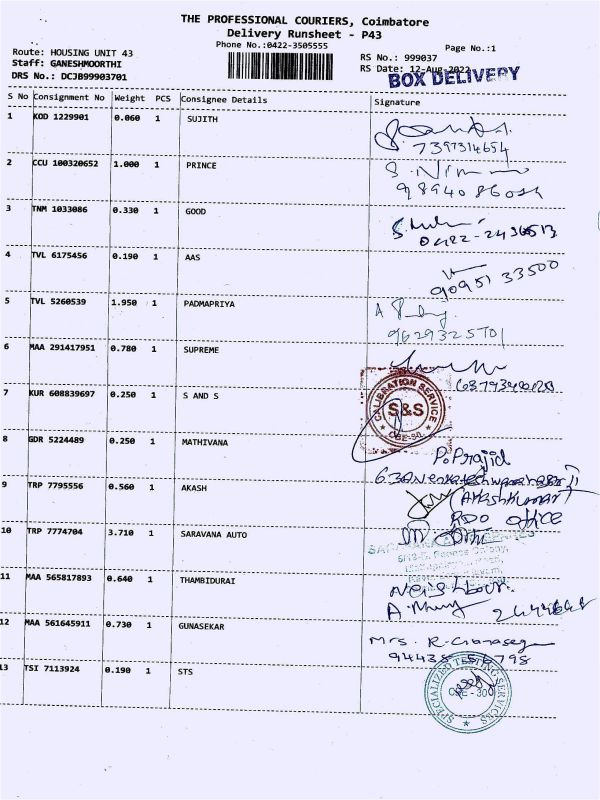 THE PROFESSIONAL COURIERS, Coimbatore
Delivery Runsheet - P43
Phone No.:0422-3505555
Page No.:1
Route: HOUSING UNIT 43
RS No.: 999037
Staff: GANESHMOORTHI
RS Date: 12-Aug-2022
DRS No.: DCJB99903701
BOX DELIVERY
S No Consignment No Weight PCS Consignee Details Signature
1 KOD 1229901 0.060 1 SUJITH
7397314654
2 CCU 100320652 1.000 1 PRINCE
3 TNM 1033086 0.330 1 GOOD
4 TVL 6175456 0.190 1 AAS
90951 33500
5 TVL 5260539 1.950 1 PADMAPRIYA
6 MAA 291417951 0.780 1 SUPREME
7 KUR 608839697 0.250 1 S AND S
CALIBRATION SERVICE
S&S
8 GDR 5224489 0.250 1 MATHIVANA
P. Prajid
9 TRP 7795556 0.560 1 AKASH
(Akash Kumar)
RDO office
10 TRP 7774704 3.710 1 SARAVANA AUTO
11 MAA 565817893 0.640 1 THAMBIDURAI
Neighbour.
12 MAA 561645911 0.730 1 GUNASEKAR
Mrs. R. Gunasegar
94438 56798
13 TSI 7113924 0.190 1 STS
SPECIALIZED TESTING SERVICES